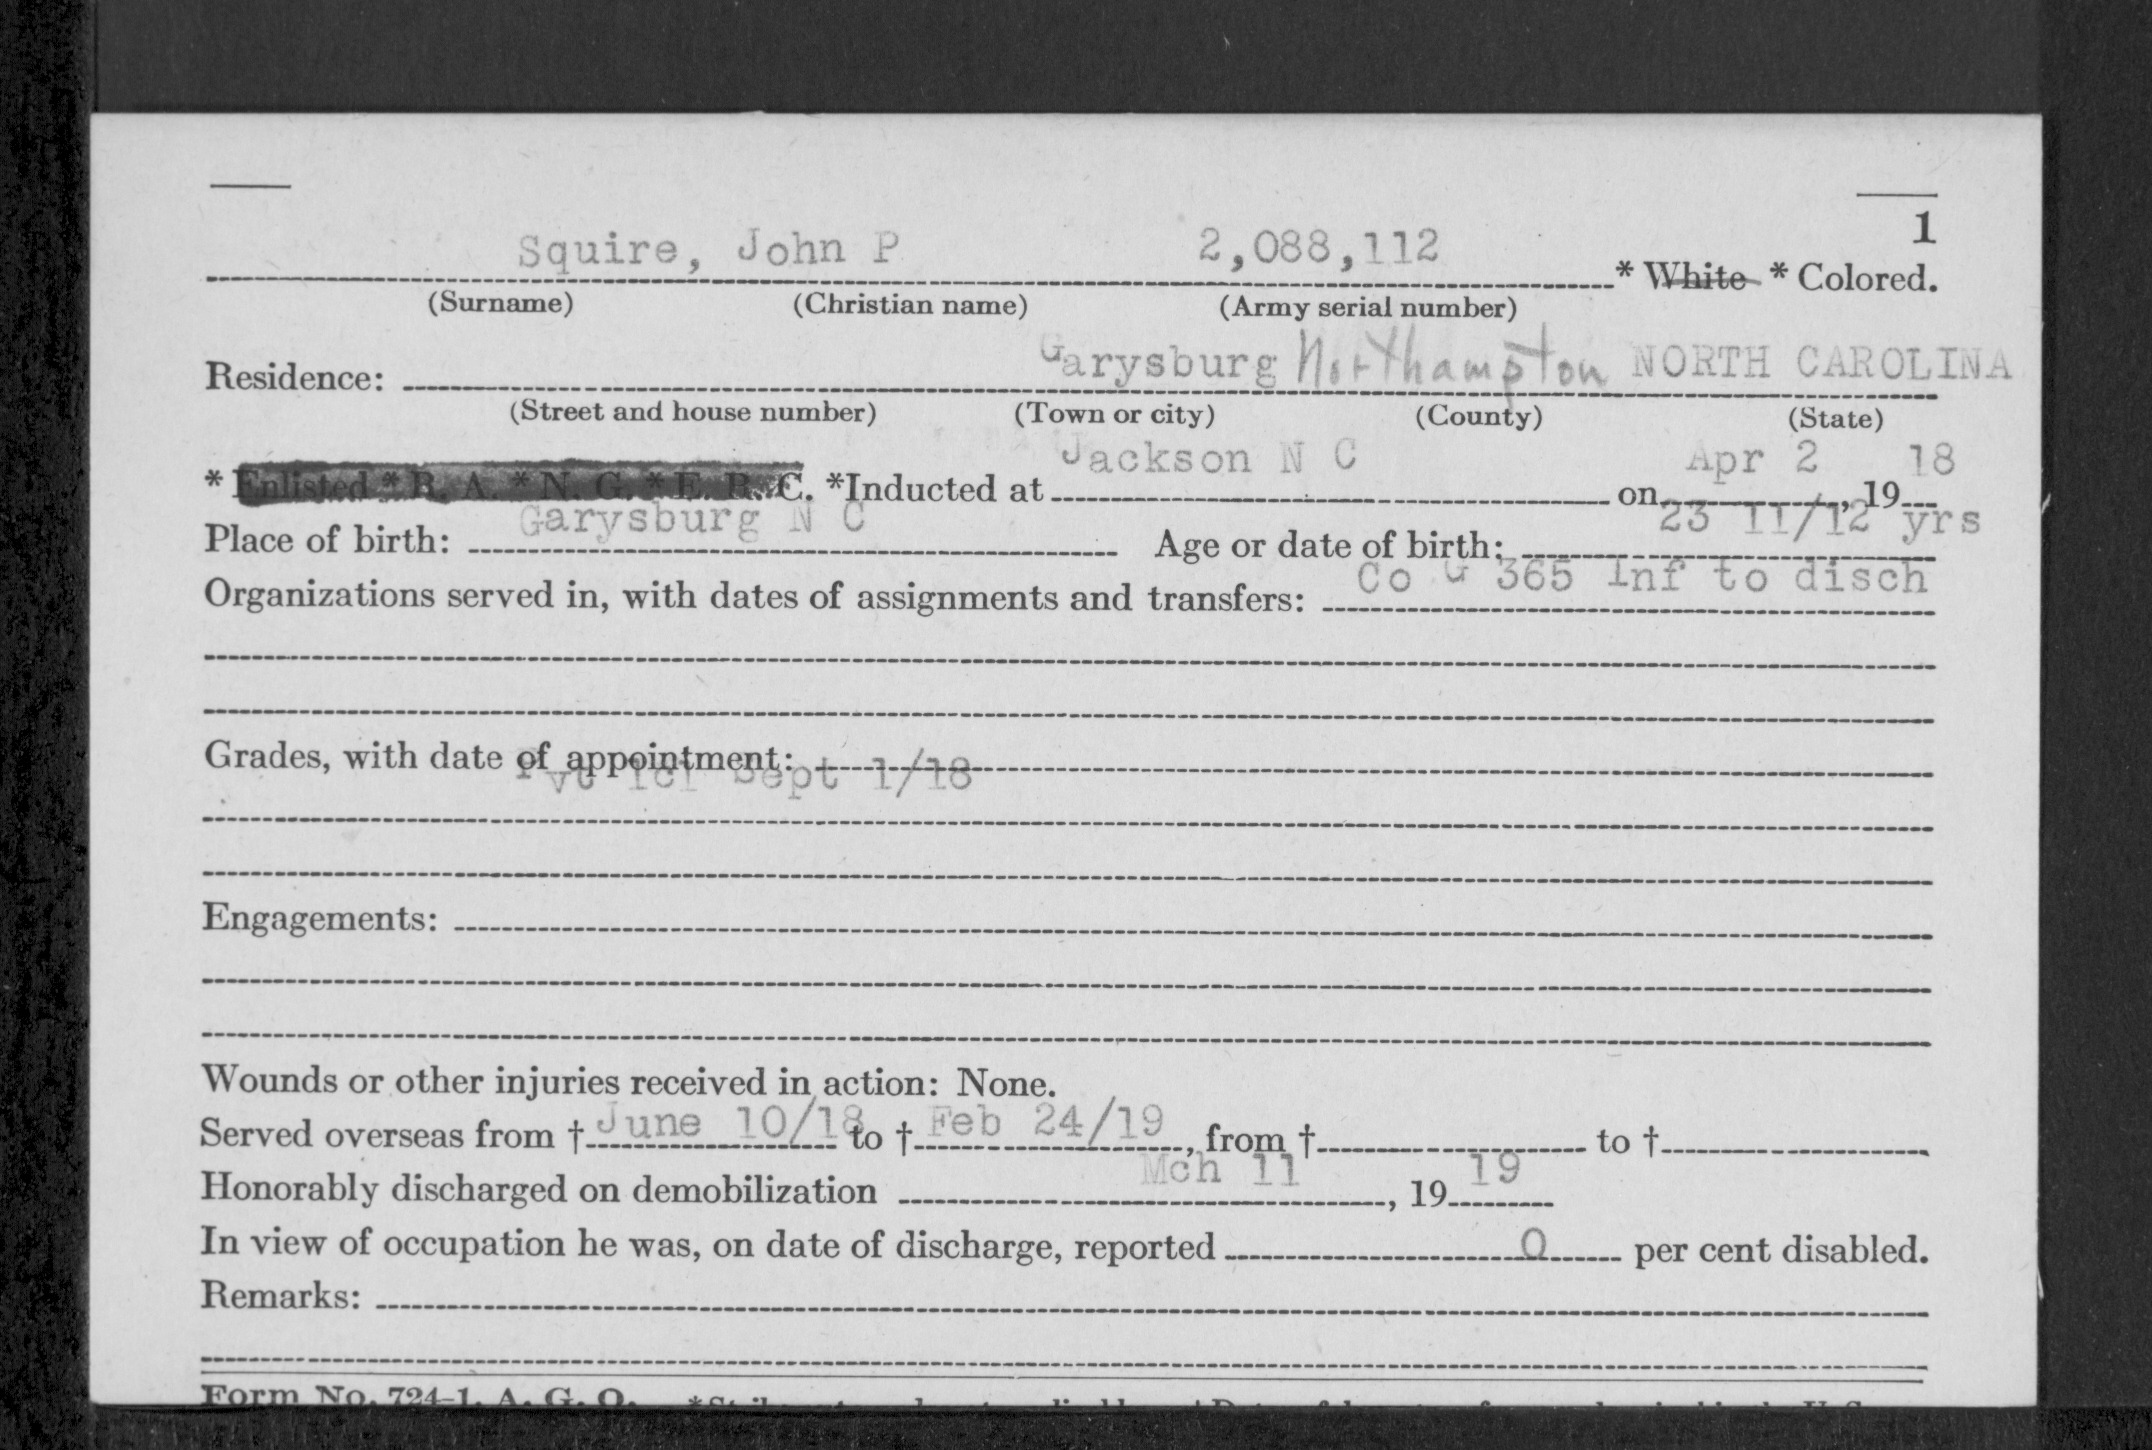 1
Squire, John P 2,088,112 * White * Colored.
(Surname) (Christian name) (Army serial number)
Residence: Garysburg Northampton NORTH CAROLINA
(Street and house number) (Town or city) (County) (State)
* Enlisted * R. A. * N. G. * E. R. C. *Inducted at Jackson N C on Apr 2, 1918
Place of birth: Garysburg N C Age or date of birth: 23 11/12 yrs
Organizations served in, with dates of assignments and transfers: Co G 365 Inf to disch
Grades, with date of appointment:
Pvt 1cl Sept 1/18
Engagements:
Wounds or other injuries received in action: None.
Served overseas from † June 10/18 to † Feb 24/19, from † to †
Honorably discharged on demobilization Mch 11, 1919
In view of occupation he was, on date of discharge, reported 0 per cent disabled.
Remarks:
Form No. 724-1, A. G. O.